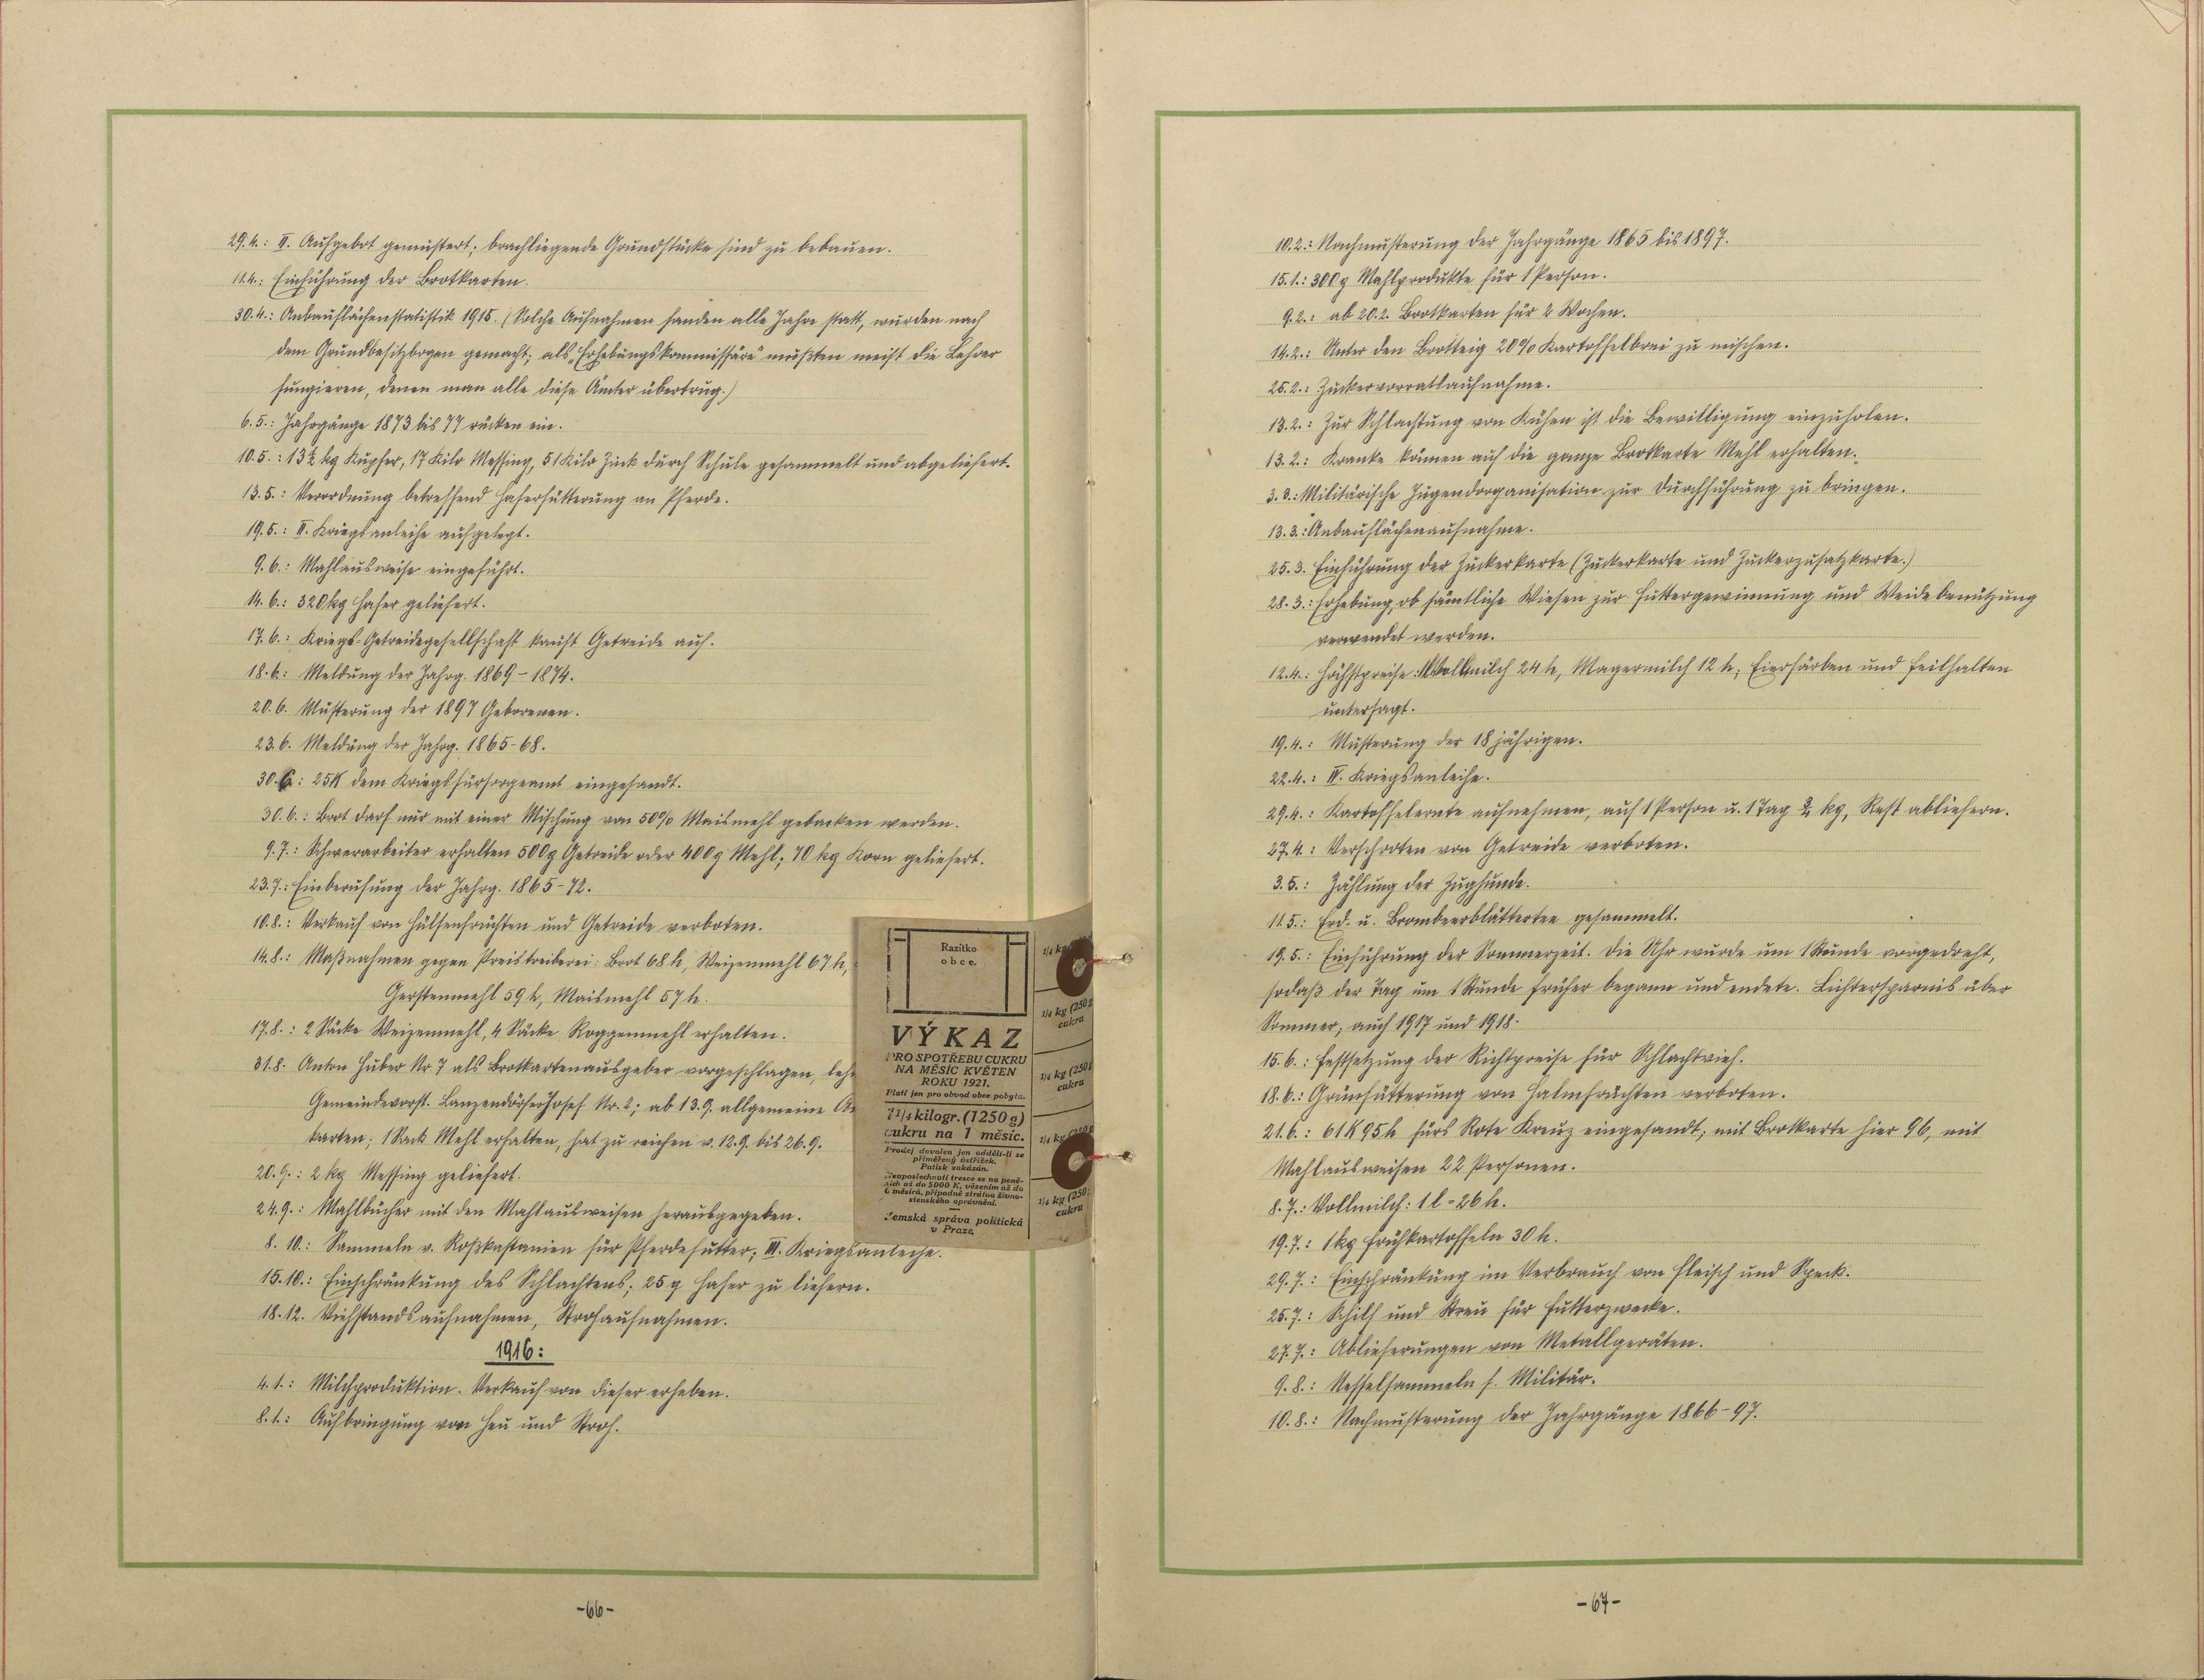 29.4.: II. Aufgebot gemustert; brachliegende Grundstücke sind zu bebauen.
11.4.: Einführung der Brotkarten.
30.4.: Anbauflächenstatistik 1915. (Solche Aufnahmen fanden alle Jahre statt, wurden nach
dem Grundbesitzbogen gemacht; als „Erhebungskommissäre" mußten meist die Lehrer
fungieren, denen man alle diese Ämter übertrug.)
6.5.: Jahrgänge 1873 bis 77 rücken ein.
10.5.: 13½ kg Kupfer, 17 Kilo Messing, 51 Kilo Zink durch Schule gesammelt und abgeliefert.
13.5.: Verordnung betreffend Haferfütterung an Pferde.
19.5.: II. Kriegsanleihe aufgelegt.
9.6.: Mahlausweise eingeführt.
14.6.: 320 kg Hafer geliefert.
17.6.: Kriegs-Getreidegesellschaft kauft Getreide auf.
18.6.: Meldung der Jahrg. 1869-1874.
20.6. Musterung der 1897 Geborenen.
23.6. Meldung der Jahrg. 1865-68.
30.6.: 25K dem Kriegsfürsorgeamt eingesandt.
30.6.: Brot darf nur mit einer Mischung von 50% Maismehl gebacken werden.
9.7.: Schwerarbeiter erhalten 500g Getreide oder 400g Mehl; 70 kg Korn geliefert.
23.7.: Einberufung der Jahrg. 1865-72.
10.8.: Verkauf von Hülsenfrüchten und Getreide verboten.
14.8.: Maßnahmen gegen Preistreiberei: Brot 68 h, Weizenmehl 67 h,
Gerstenmehl 59 h, Maismehl 57 h.
17.8.: 2 Säcke Weizenmehl, 4 Säcke Roggenmehl erhalten.
31.8. Anton Huber Nr 7 als Brotkartenausgeber vorgeschlagen,
Gemeindevorst. Lanzendörfer Josef Nr. 2; ab 13.9. allgemeine
karten; 1 Sack Mehl erhalten, hat zu reichen v. 12.9. bis 26.9.
20.9.: 2 kg Messing geliefert.
24.9.: Mahlbücher mit den Mahlausweisen herausgegeben.
8.10.: Sammeln v. Roßkastanien für Pferdefutter; III. Kriegsanleihe.
15.10.: Einschränkung des Schlachtens; 25 q Hafer zu liefern.
18.12. Viehstandsaufnahmen, Strohaufnahmen.
1916:
4.1.: Milchproduktion. Verkauf von dieser erheben.
8.1.: Aufbringung von Heu und Stroh.
-66-
Razítko
obce.
VÝKAZ
PRO SPOTŘEBU CUKRU
NA MĚSÍC KVĚTEN
ROKU 1921.
Platí jen pro obvod obce pobytu.
1¼ kilogr. (1250 g)
cukru na 1 měsíc.
Prodej dovolen jen oddělí-li se
přiměřený ústřižek.
Patisk zakázán.
Neuposlechnutí tresce se na peně-
zích až do 5000 K, vězením až do
6 měsíců, případně ztrátou živno-
stenského oprávnění.
Zemská správa politická
v Praze
1/4 kg
1/4 kg (250 g
cukru
1/4 kg (250
cukru
1/4 kg (250 g
1/4 kg (250
cukru
10.2.: Nachmusterung der Jahrgänge 1865 bis 1897.
15.1.: 300g Mahlprodukte für 1 Person.
9.2.: ab 20.2. Brotkarten für 2 Wochen.
14.2.: Unter den Brotteig 20% Kartoffelbrei zu mischen.
25.2.: Zuckervorratsaufnahme.
13.2.: Zur Schlachtung von Kühen ist die Bewilligung einzuholen.
13.2.: Kranke können auf die ganze Brotkarte Mehl erhalten.
3.3.: Militärische Jugendorganisation zur Durchführung zu bringen.
13.3.: Anbauflächenaufnahme.
25.3. Einführung der Zuckerkarte (Zuckerkarte und Zuckerzusatzkarte.)
28.3.: Erhebung, ob sämtliche Wiesen zur Futtergewinnung und Weidebenützung
verwendet werden.
12.4.: Höchstpreise: Vollmilch 24 h, Magermilch 12 h; Eierfärben und Feilhalten
untersagt.
19.4.: Musterung der 18 jährigen.
22.4.: IV. Kriegsanleihe.
29.4.: Kartoffelernte aufnehmen, auf 1 Person u. 1 Tag kg, Rest abliefern.
27.4.: Verschroten von Getreide verboten.
3.5.: Zählung der Zughunde.
11.5.: Erd- u. Brombeerblättertee gesammelt.
19.5.: Einführung der Sommerzeit. Die Uhr wurde um 1 Stunde vorgedreht,
sodaß der Tag um 1 Stunde früher begann und endete. Lichtersparnis über
Sommer, auch 1917 und 1918.
15.6.: Festsetzung der Richtpreise für Schlachtvieh.
18.6.: Grünfütterung von Halmfrüchten verboten.
21.6.: 61K 95h fürs Rote Kreuz eingesandt; mit Brotkarte hier 96, mit
Mahlausweisen 22 Personen.
8.7.: Vollmilch: 1 l - 26 h.
19.7.: 1 kg Frühkartoffeln 30 h.
29.7.: Einschränkung im Verbrauch von Fleisch und Speck.
25.7.: Schilf und Streu für Futterzwecke.
27.7.: Ablieferungen von Metallgeräten.
9.8.: Nesselsammeln f. Militär.
10.8.: Nachmusterung der Jahrgänge 1866-97.
-67-